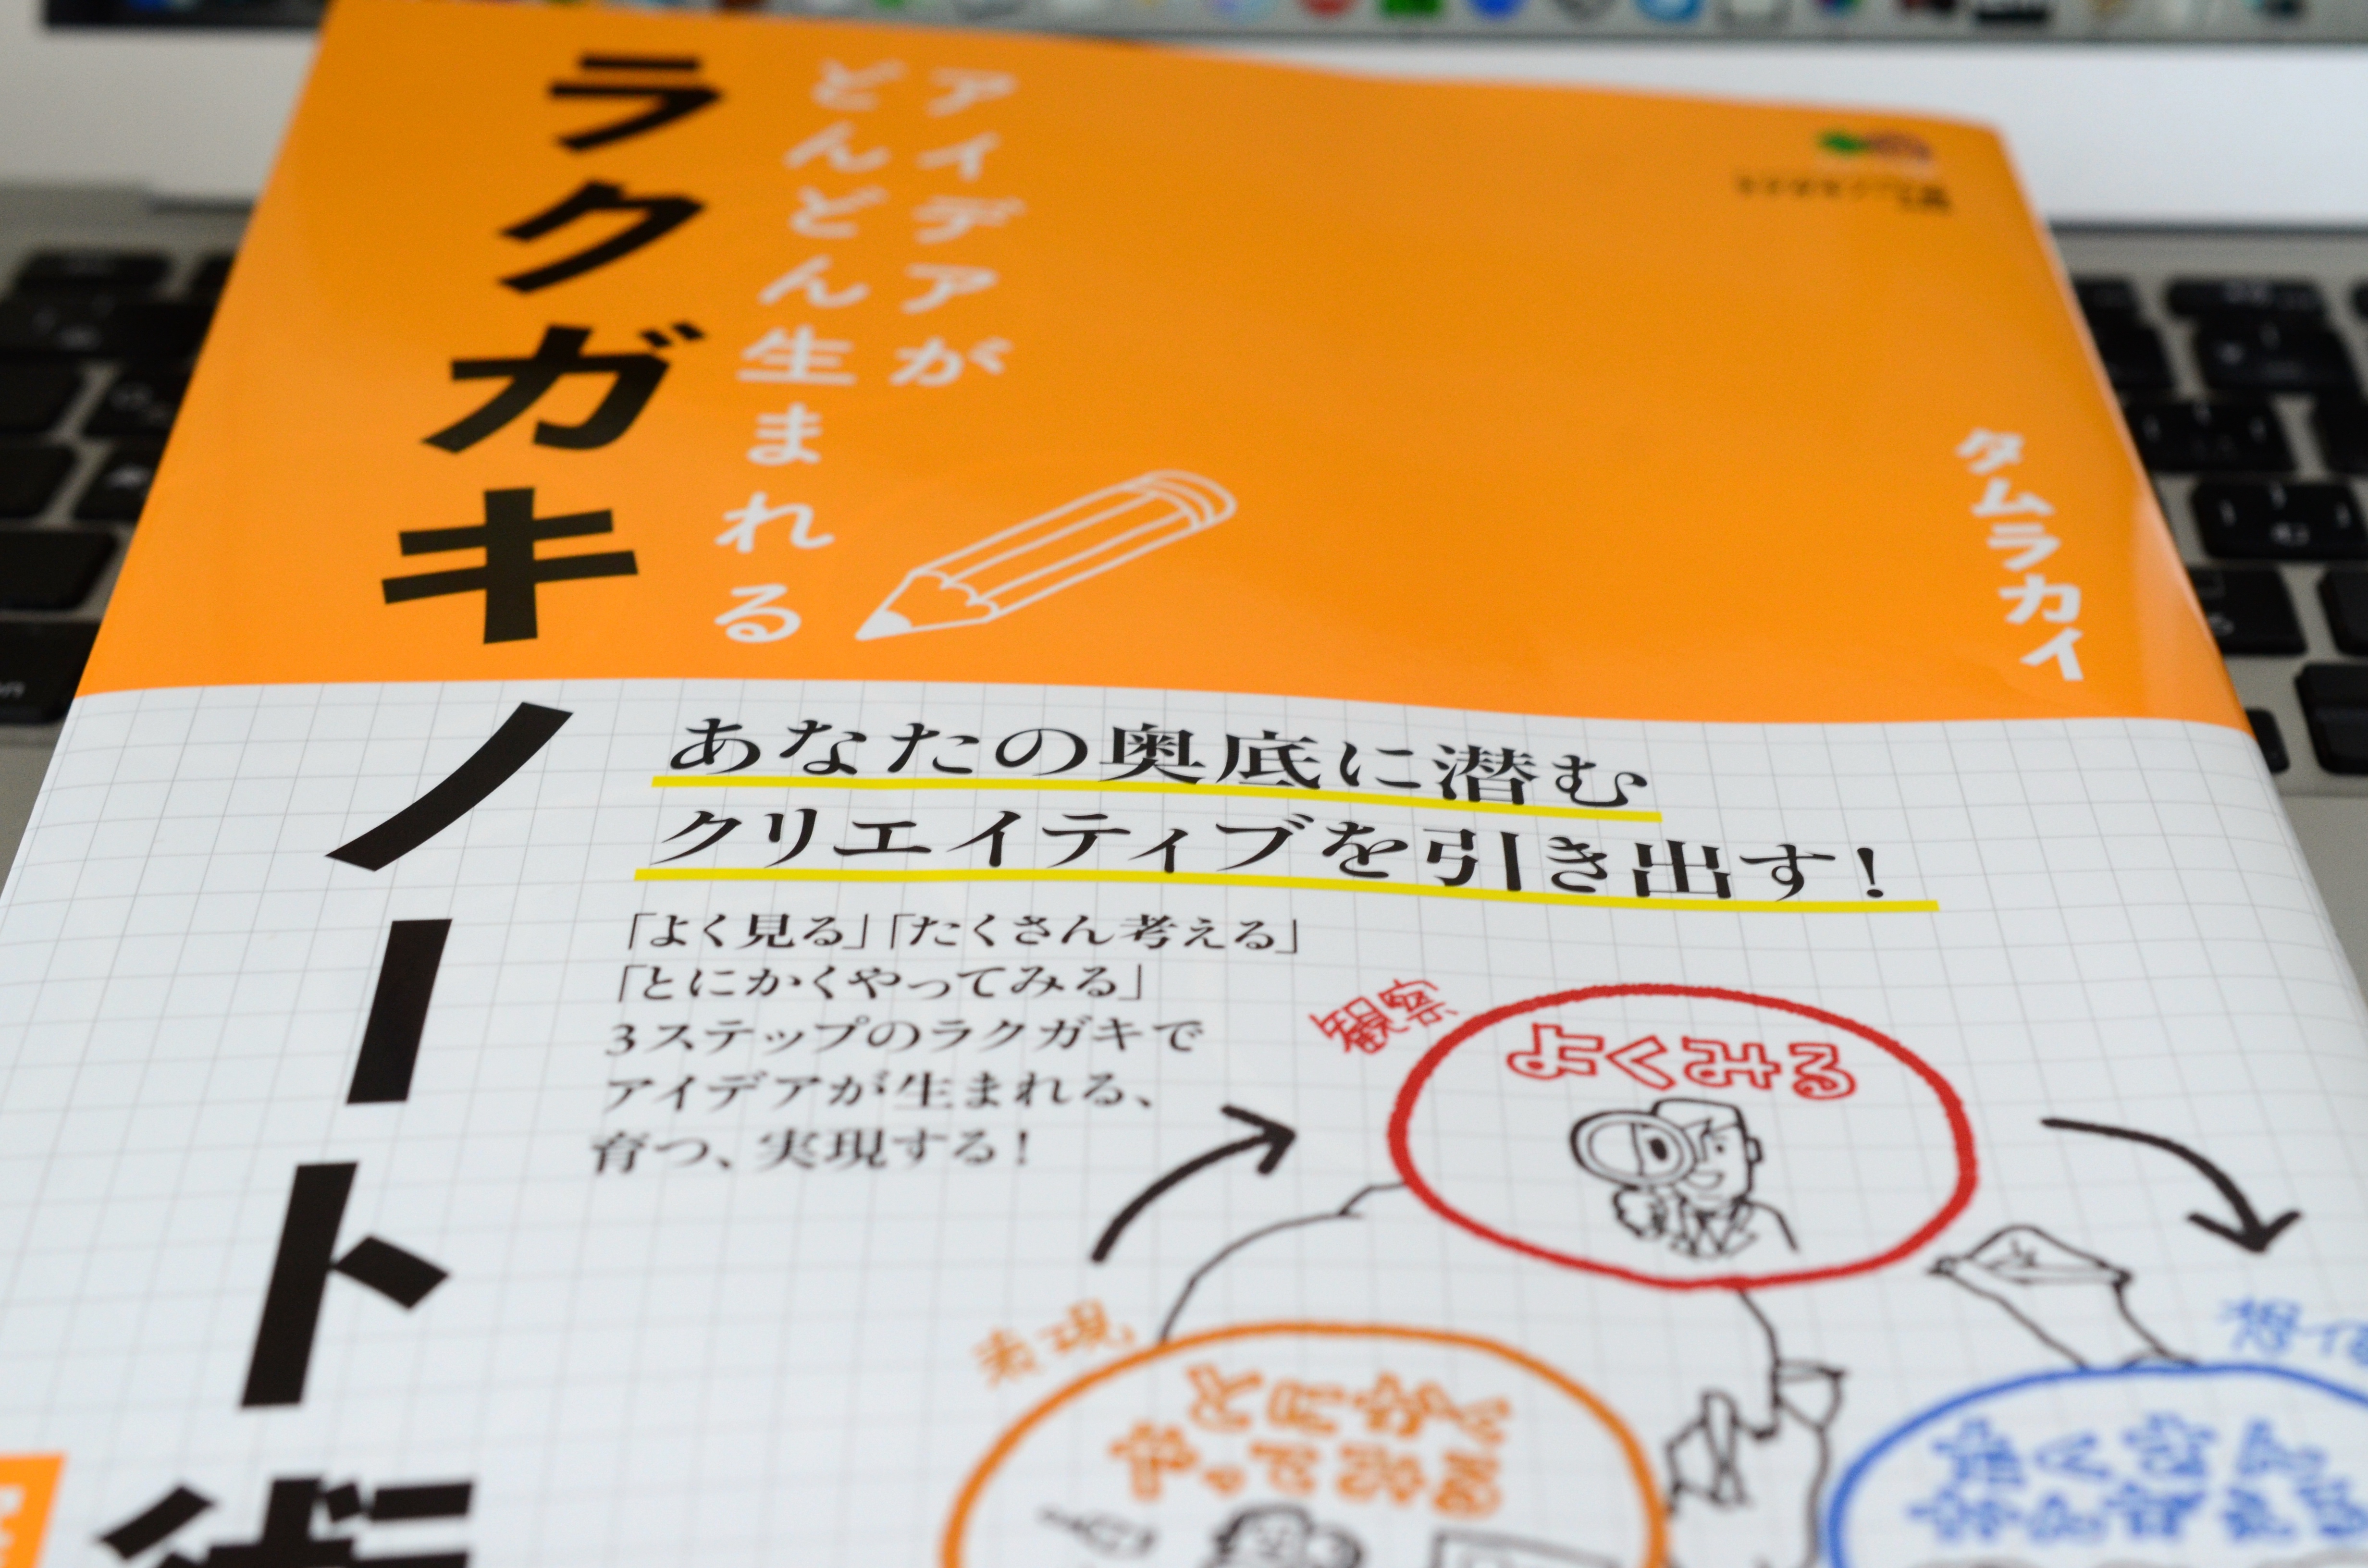 アイデアが
どんどん生まれる
ラクガキノート術
タムラカイ
あなたの奥底に潜む
クリエイティブを引き出す!
「よく見る」「たくさん考える」
「とにかくやってみる」
3ステップのラクガキで
アイデアが生まれる、
育つ、実現する!
観察
よくみる
表現
とにかく
やってみる
たくさん